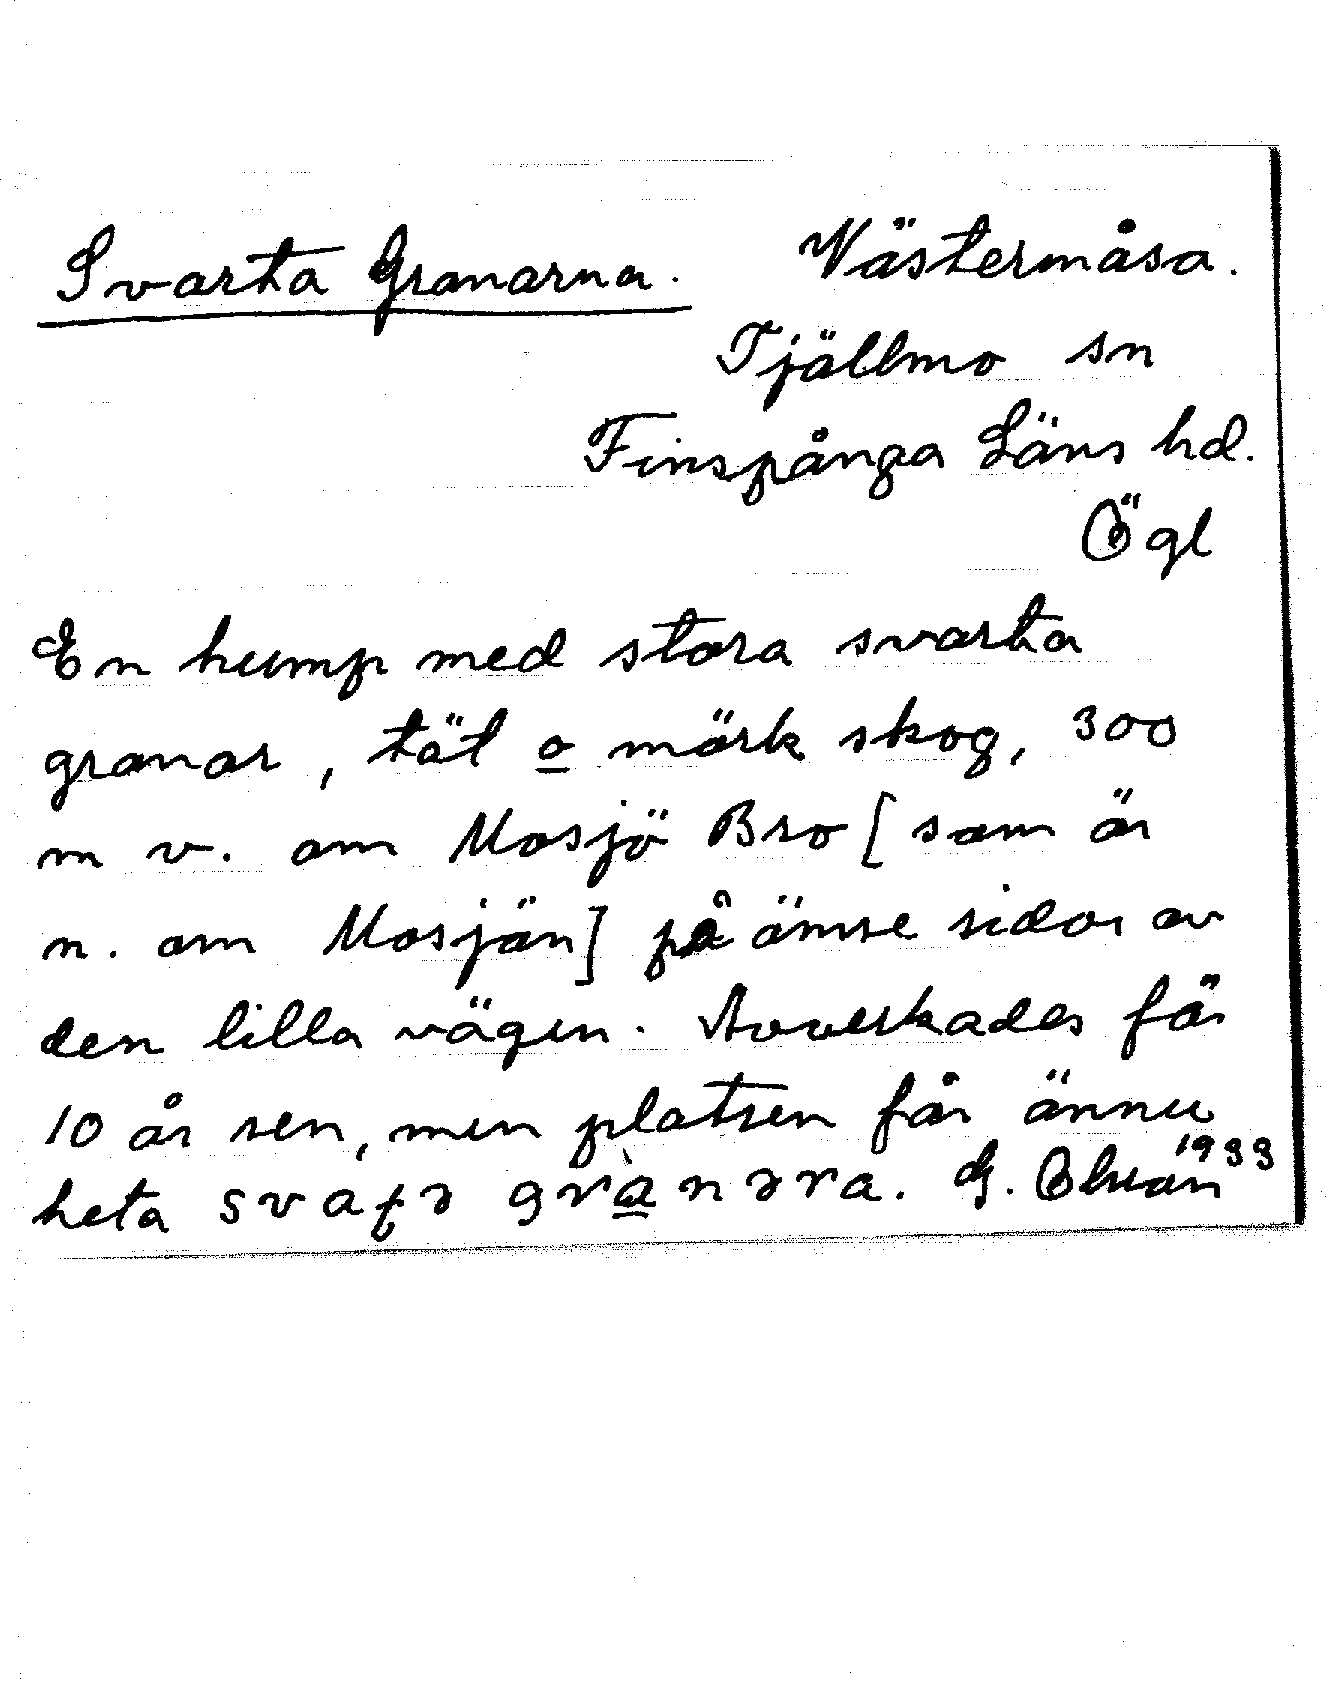 Svarta Granarna. Västermåsa.
Tjällmo sn
Finspånga Läns hd.
Ögl
En hump med stora svarta
granar, tät o mörk skog, 300
m v. om Mosjö Bro [som är
n. om Mosjön] på ömse sidor av
den lilla vägen. Avverkades för
10 år sen, men platsen får ännu
heta svaʈə granəra. G. 1933